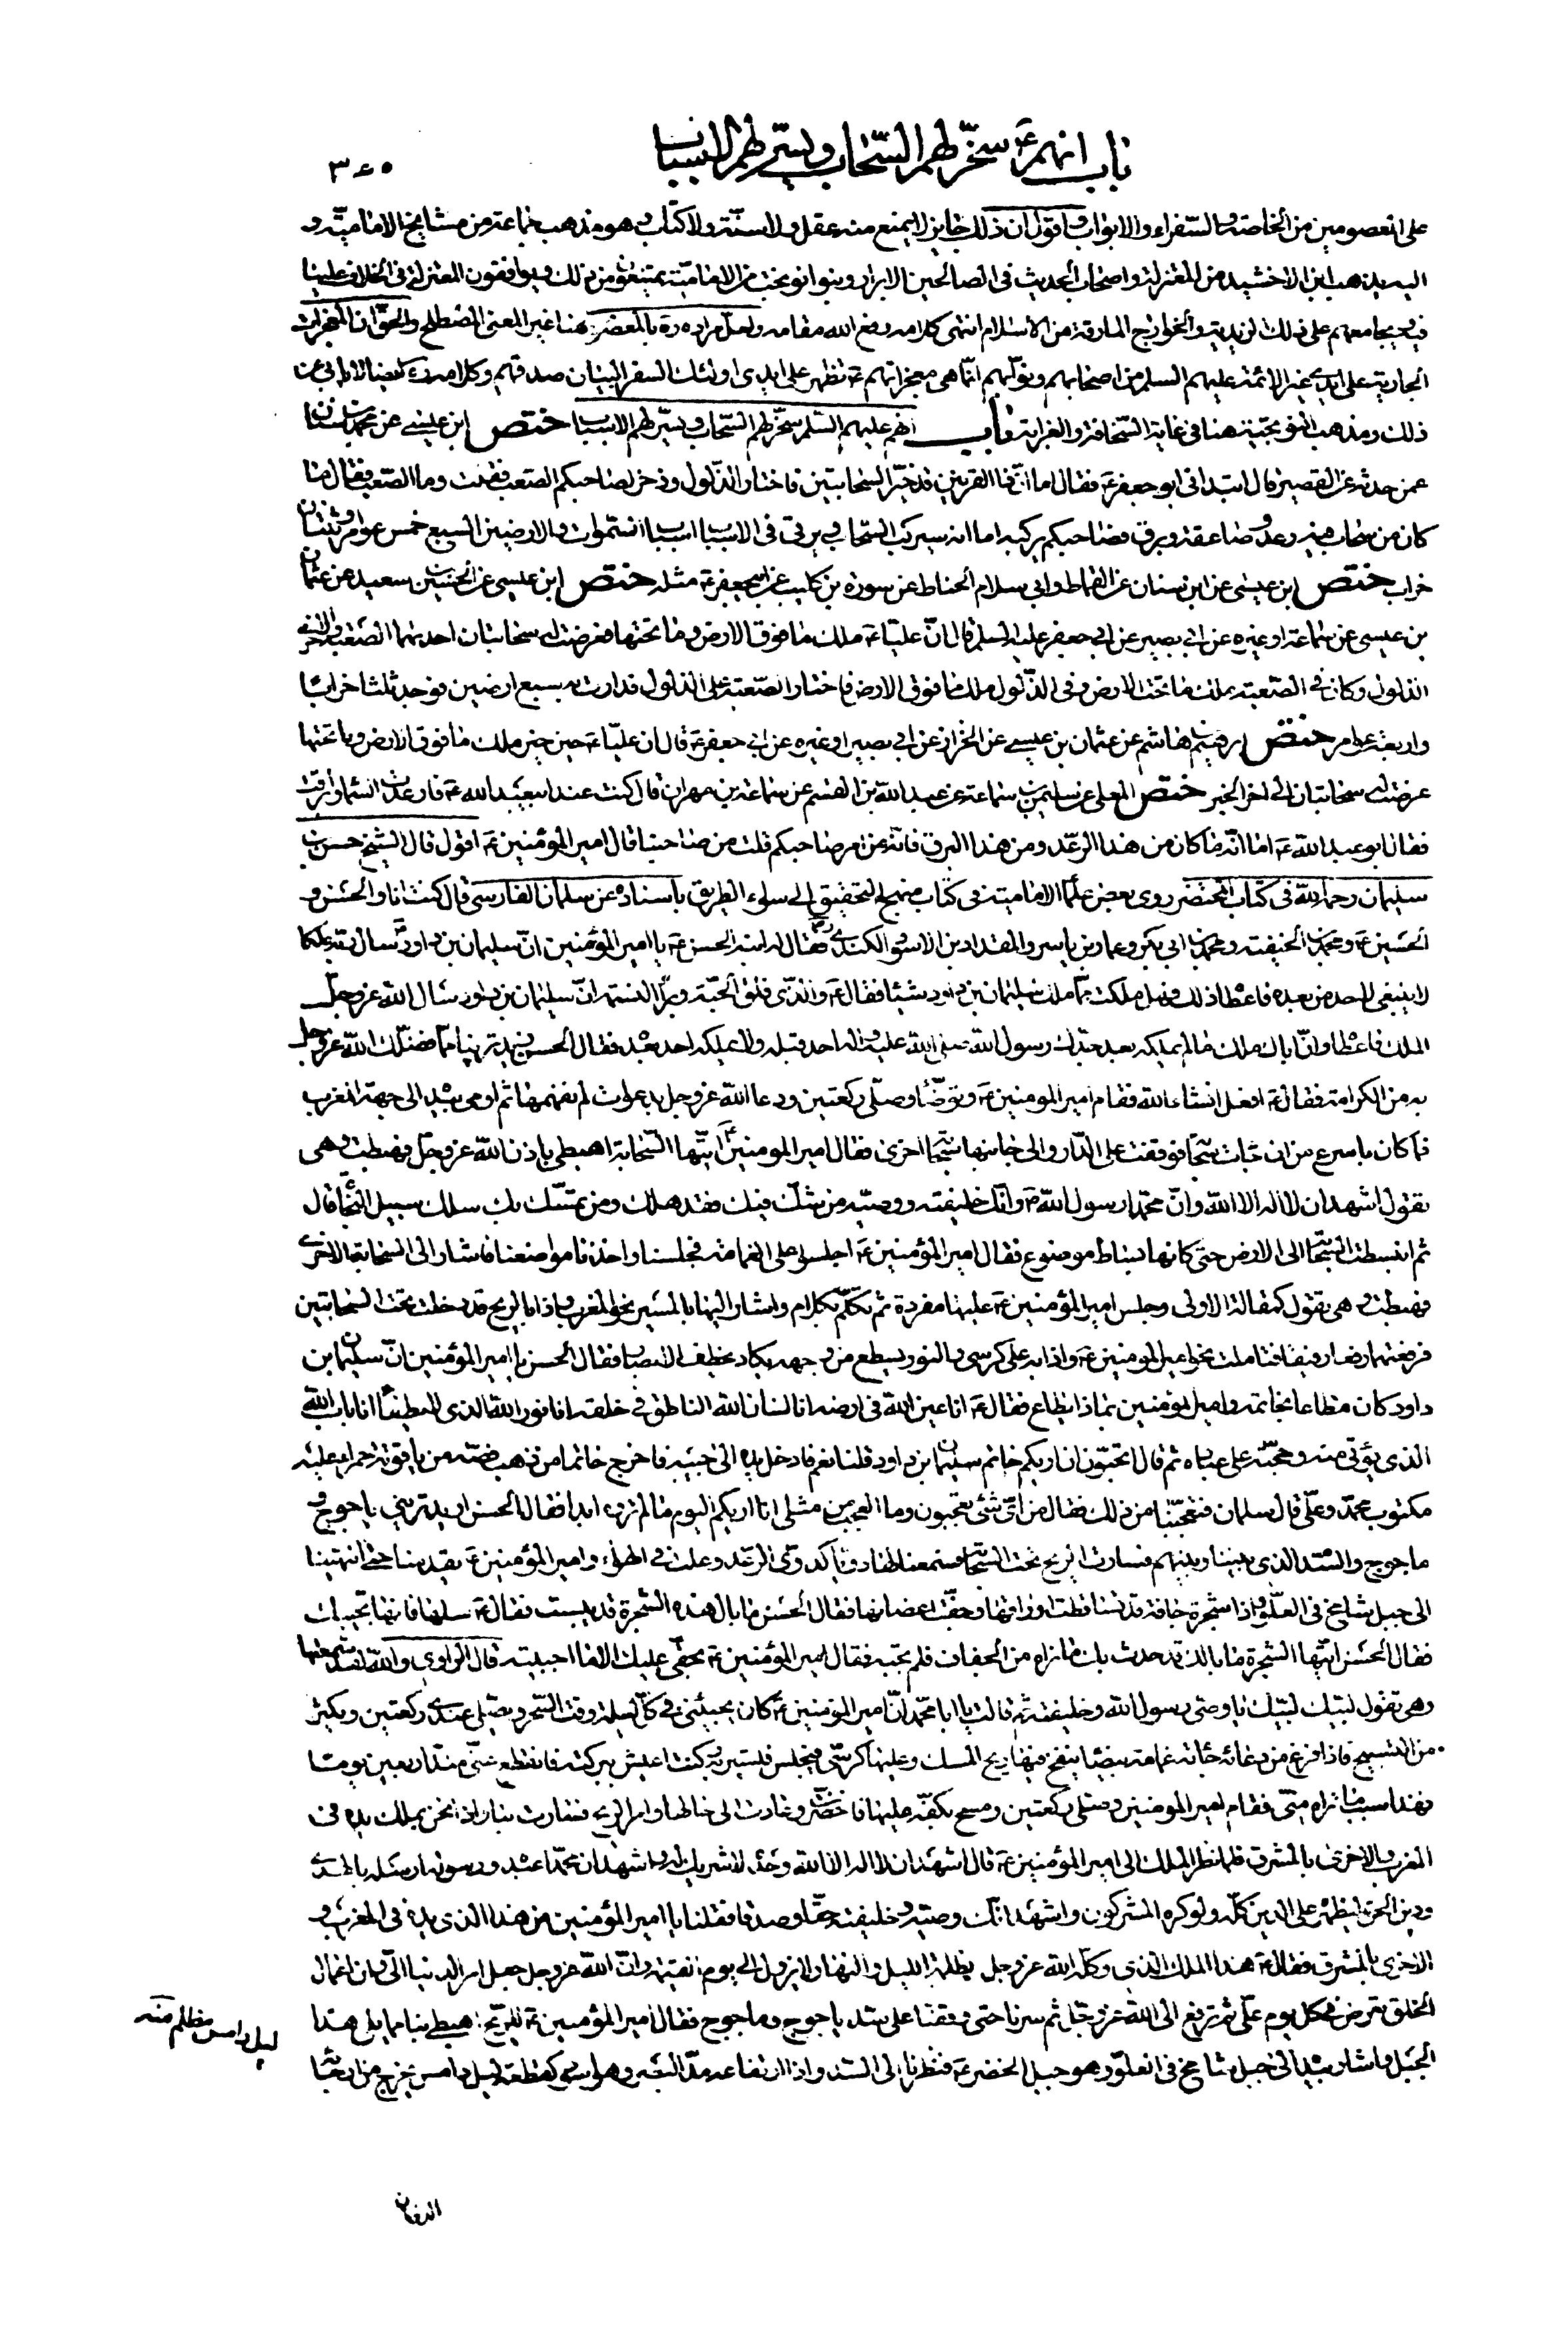 باب انهم ع سخر لهم السحاب ويسر لهم الاسباب
٣٦٥
على المعصومين من الخاصة والسفراء والابواب واقول ان ذلك جايز لا يمنع منه عقل ولا سنة ولا كتاب وهو مذهب جماعة من مشايخ الامامية و
اليه يذهب ابن الاخشيد من المعتزلة واصحاب الحديث في الصالحين الابرار وبنو نوبخت من الامامية يمتنعون من ذلك ويوافقون المعتزلة في الخلاف علينا
فيه ويجامعهم على ذلك الزيدية والخوارج المارقة من الاسلام انتهى كلامه رفع الله مقامه ولعل مراده ره بالمعصوم هنا غير المعنى المصطلح والحق ان المعجزات
الجارية على ايدي غير الائمة عليهم السلم من اصحابهم ونوابهم انما هي معجزاتهم ع تظهر على ايدي اولئك السفراء لبيان صدقهم وكلامه ره ايضا لا يابى عن
ذلك ومذهب النوبختية هنا في غاية السخافة والغرابة باب انهم عليهم السلم سخر لهم السحاب ويسر لهم الاسباب ختص ابن عيسى عن محمد بن سنان
عمن حدثه عن القصير قال ابتداني ابو جعفر ع فقال اما ان ذا القرنين قد خير السحابتين فاختار الذلول وذخر لصاحبكم الصعب فقلت وما الصعب فقال ما
كان من سحاب فيه رعد وصاعقة وبرق فصاحبكم يركبه اما انه سيركب السحاب ويرقى في الاسباب اسباب السموات والارضين السبع خمس عوامر وثنتان
خراب ختص ابن عيسى عن ابن سنان عن القماط وابي سلام الحناط عن سورة بن كليب عن ابي جعفر ع مثله ختص ابن عيسى عن الحسين بن سعيد عن عثمان
بن عيسى عن سماعة او غيره عن ابي بصير عن ابي جعفر عليه السلم قال ان عليا ع ملك ما فوق الارض وما تحتها فعرضت له سحابتان احديهما الصعب والاخرى
الذلول وكان في الصعبة ملك ما تحت الارض وفي الذلول ملك ما فوق الارض فاختار الصعبة على الذلول فدارت به سبع ارضين فوجد ثلثا خرابا
واربعة عوامر ختص ابرهيم بن هاشم عن عثمان بن عيسى عن الخزاز عن ابي بصير او غيره عن ابي جعفر ع قال ان عليا ع حين خير ملك ما فوق الارض وما تحتها
عرضت له سحابتان الى اخر الخبر ختص المعلى عن سليمن بن سماعة عن عبد الله بن القسم عن سماعة بن مهران قال كنت عند ابي عبد الله ع فارعدت السماء وابرقت
فقال ابو عبد الله ع اما انه ما كان من هذا الرعد ومن هذا البرق فانه من امر صاحبكم قلت من صاحبنا قال امير المؤمنين ع اقول قال الشيخ حسن بن
سليمان رحمه الله في كتاب المحتضر روى بعض علماء الامامية في كتاب منهج التحقيق الى سواء الطريق باسناده عن سلمان الفارسي قال كنت انا والحسن و
الحسين ع ومحمد بن الحنيفة ومحمد بن ابي بكر وعمار بن ياسر والمقداد بن الاسود الكندي رض فقال له ابنه الحسن ع يا امير المؤمنين ان سليمان بن داود سال ربه ملكا
لا ينبغي لاحد من بعده فاعطاه ذلك فهل ملكت مما ملك سليمان بن داود شيئا فقال ع والذي فلق الحبة وبرا النسمة ان سليمان بن داود سال الله عز وجل
الملك فاعطاه وان اباك ملك ما لم يملكه بعد جدك رسول الله صلى الله عليه واله احد قبله ولا يملكه احد بعده فقال الحسن نريد ترينا مما فضلك الله عز وجل
به من الكرامة فقال ع افعل انشاء الله فقام امير المؤمنين ع وتوضا وصلى ركعتين ودعا الله عز وجل بدعوات لم نفهمها ثم اومى بيده الى جهة المغرب
فما كان باسرع من ان جاءت سحابة فوقفت على الدار والى جانبها سحابة اخرى فقال امير المومنين ع ايتها السحابة اهبطي باذن الله عز وجل فهبطت وهي
تقول اشهد ان لا اله الا الله وان محمدا رسول الله ص وانك خليفته ووصيه من شك فيك فقد هلك ومن تمسك بك سلك سبيل النجاة قال
ثم انبسطت السحابة الى الارض حتى كانها بساط موضوع فقال امير المؤمنين ع اجلسوا على الغمامة فجلسنا واخذنا مواضعنا فاشار الى السحابة الاخرى
فهبطت وهي تقول كمقالة الاولى وجلس امير المؤمنين ع عليها مفردة ثم تكلم بكلام واشار اليها بالمسير نحو المغرب واذا بالريح قد دخلت تحت السحابتين
فرفعتهما رفعا رفيقا فتاملت نحو امير المومنين ع واذا به على كرسي والنور يسطع من وجهه يكاد يخطف الابصار فقال الحسن يا امير المؤمنين ان سليمان بن
داود كان مطاعا بخاتمه وامير المؤمنين بماذا يطاع فقال ع انا عين الله في ارضه انا لسان الله الناطق في خلقه انا نور الله الذي لا يطفا انا باب الله
الذي يؤتى منه وحجته على عباده ثم قال اتحبون ان اريكم خاتم سليمان بن داود قلنا نعم فادخل يده الى جيبه فاخرج خاتما من ذهب فصه من ياقوتة حمراء عليه
مكتوب محمد وعلي قال سلمان فتعجبنا من ذلك فقال من اي شئ تعجبون وما العجب من مثلي انا اريكم اليوم ما لم تروه ابدا فقال الحسن اريد تريني ياجوج و
ماجوج والسد الذي بيننا وبينهم فسارت الريح تحت السحابة فسمعنا لها دويا كدوي الرعد وعلت في الهواء وامير المؤمنين ع يقدمنا حتى انتهينا
الى جبل شامخ في العلو واذا شجرة جافة قد تساقطت اوراقها وجفت اغصانها فقال الحسن ما بال هذه الشجرة قد يبست فقال ع سلها فانها تجيبك
فقال الحسن ايتها الشجرة ما بالك قد حدث بك ما نراه من الجفاف فلم تجبه فقال امير المؤمنين ع بحقي عليك الا ما اجبتيه قال الراوي والله لقد سمعتها
وهي تقول لبيك لبيك يا وصي رسول الله وخليفته ثم قالت يا ابا محمد ان امير المؤمنين ع كان يجيئني في كل ليلة وقت السحر ويصلي عندي ركعتين ويكثر
من التسبيح فاذا فرغ من دعائه جائته غمامة بيضاء ينفح منها ريح المسك وعليها كرسي فيجلس فتسير به وكنت اعيش ببركته فانقطع عني منذ اربعين يوما
فهذا سبب ما تراه مني فقام امير المومنين وصلى ركعتين ومسح بكفه عليها فاخضرت وعادت الى حالها وامر الريح فسارت بنا واذا نحن بملك يده في
المغرب والاخرى بالمشرق فلما نظر الملك الى امير المؤمنين ع قال اشهد ان لا اله الا الله وحده لا شريك له واشهد ان محمدا عبده ورسوله ارسله بالهدى
ودين الحق ليظهره على الدين كله ولو كره المشركون واشهد انك وصيه وخليفته حقا وصدقا فقلنا يا امير المؤمنين من هذا الذي يده في المغرب و
الاخرى بالمشرق فقال ع هذا الملك الذي وكله الله عز وجل بظلمة الليل والنهار لا يزول الى يوم القيمة وان الله عز وجل جعل امر الدنيا الي وان اعمال
الخلق تعرض في كل يوم علي ثم ترفع الى الله عز وجل ثم سرنا حتى وقفنا على سد ياجوج وماجوج فقال امير المؤمنين ع للريح اهبطي بنا مما يلي هذا
الجبل واشار بيده الى جبل شامخ في العلو وهو جبل الخضر ع فنظرنا الى السد واذا ارتفاعه مد البصر وهو اسود كقطعة ليل دامس يخرج من ارجائه
ليل دامس مظلم منه
الدخان